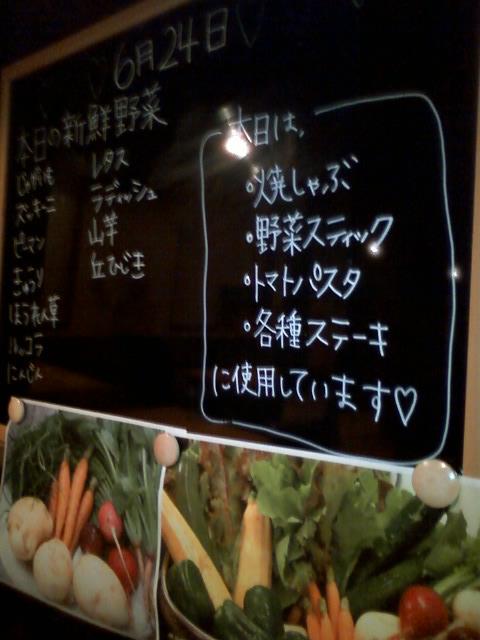 6月24日
本日の新鮮野菜
じゃがいも
ズッキーニ
ピーマン
きゅうり
ほうれん草
ルッコラ
にんじん
レタス
ラディッシュ
山芋
丘ひじき
本日は、
・焼しゃぶ
・野菜スティック
・トマトパスタ
・各種ステーキ
に使用しています♡